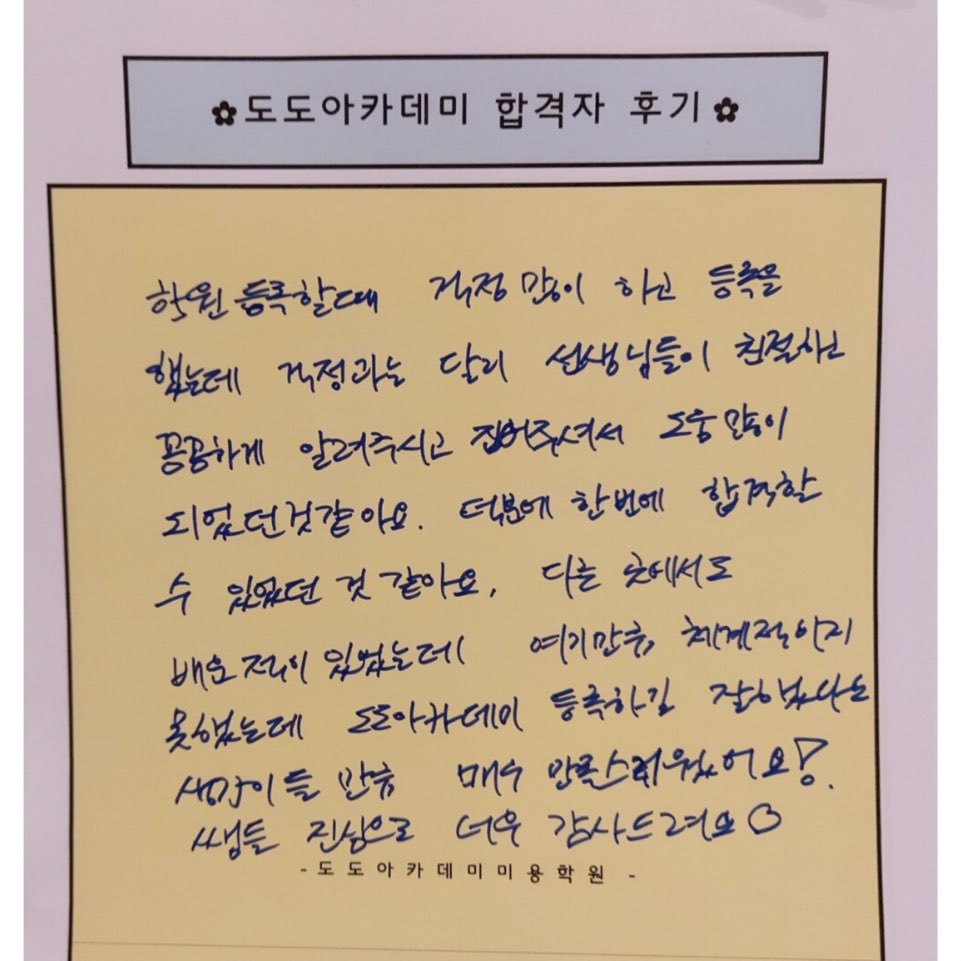 ✿도도아카데미 합격자 후기✿
학원 등록할때 걱정 많이 하고 등록을
했는데 걱정과는 달리 선생님들이 친절하고
꼼꼼하게 알려주시고 집어주셔서 도움 많이
되었던것같아요. 덕분에 한번에 합격할
수 있었던 것 같아요. 다른 곳에서도
배운적이 있었는데 여기만큼 체계적이지
못했는데 도도아카데미 등록하길 잘했다는
생각이 들 만큼 매우 만족스러웠어요!
쌤들 진심으로 너무 감사드려요♡
- 도도아카데미미용학원 -